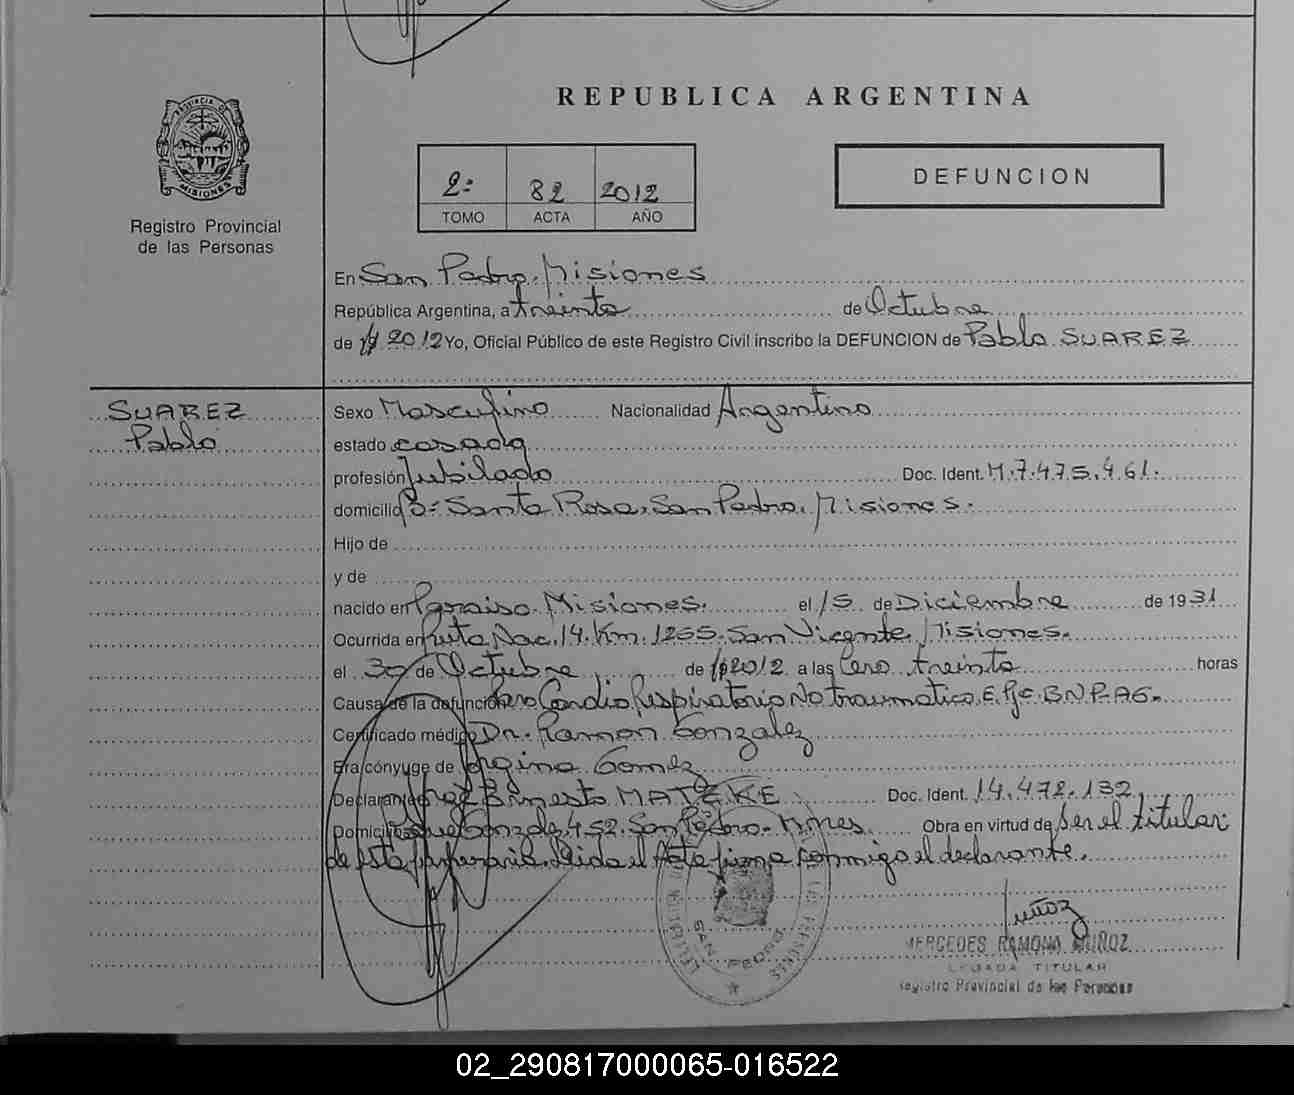 REPUBLICA ARGENTINA
PROVINCIA DE MISIONES
Registro Provincial
de las Personas
2: 82 2012
TOMO ACTA AÑO
DEFUNCION
En San Pedro. Misiones
República Argentina, a treinta de Octubre
de 2012 Yo, Oficial Público de este Registro Civil inscribo la DEFUNCION de Pablo SUAREZ
SUAREZ
Pablo
Sexo Masculino Nacionalidad Argentino
estado casado
profesión Jubilado Doc. Ident. M.7.475.461.
domicilio Bº Santa Rosa. San Pedro. Misiones.
Hijo de
y de
nacido en Paraiso. Misiones. el 15 de Diciembre de 1931
Ocurrida en Ruta Nac. 14. Km. 1255. San Vicente. Misiones.
el 30 de Octubre de 2012 a las Cero treinta horas
Causa de la defunción Paro Cardio Respiratorio No traumatico.
Certificado médico Dr. Ramon Gonzalez
Era cónyuge de Gomez
Declarante Ernesto MATZKE Doc. Ident. 14.472.132
Domicilio 452. San Pedro. Mnes. Obra en virtud de ser el titular
de esta Leida el Acta firma conmigo el declarante.
SAN PEDRO
Muñoz
MERCEDES RAMONA MUÑOZ
TITULAR
Registro Provincial de las Personas
02_290817000065-016522